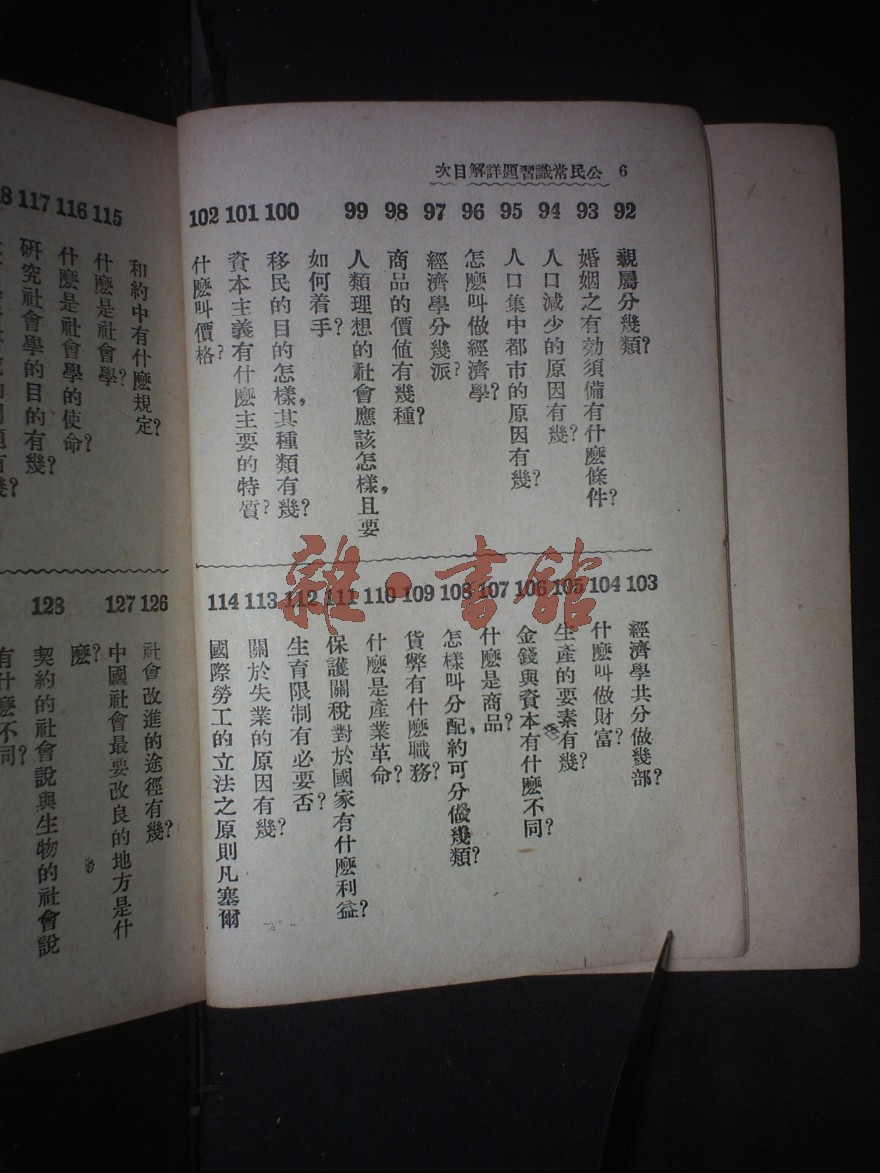 6 公民常識習題詳解目次
92 親屬分幾類?
93 婚姻之有効須備有什麽條件?
94 人口減少的原因有幾?
95 人口集中都市的原因有幾?
96 怎麽叫做經濟學?
97 經濟學分幾派?
98 商品的價値有幾種?
99 人類理想的社會應該怎樣,且要
如何着手?
100 移民的目的怎樣,其種類有幾?
101 資本主義有什麽主要的特質?
102 什麽叫價格?
103 經濟學共分做幾部?
104 什麽叫做財富?
105 生產的要素有幾?
106 金錢與資本有什麽不同?
107 什麽是商品?
108 怎樣叫分配,約可分做幾類?
109 貨弊有什麽職務?
110 什麽是產業革命?
111 保護關稅對於國家有什麽利益?
112 生育限制有必要否?
113 關於失業的原因有幾?
114 國際勞工的立法之原則凡塞爾
和約中有什麽規定?
115 什麽是社會學?
116 什麽是社會學的使命?
117 研究社會學的目的有幾?
126 社會改進的途徑有幾?
127 中國社會最要改良的地方是什
麽?
128 契約的社會說與生物的社會說
有什麽不同?
雜·書館